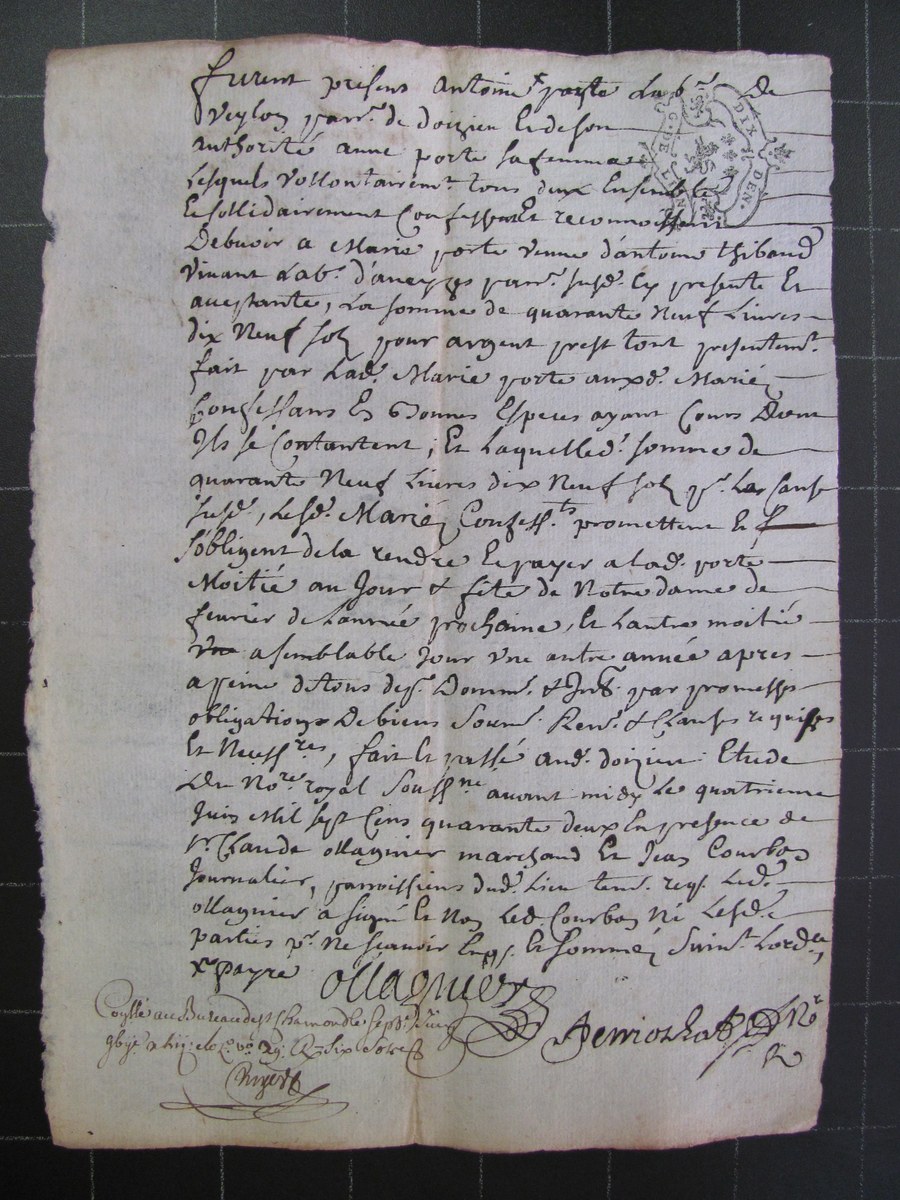 furent présens Antoine porte Lab.r De
Veylon parr.e de doizieu Et de son
authorité anne porte sa femme
Lesquels vollontairem.t tous deux Ensemble
Et sollidairement Confessent et reconnoissent
Debvoir a Marie porte veuve d'antoine thibaud
vivant Lab.r parr.e susd. Cy presente Et
acceptante, La somme de quarante Neuf Livres
dix Neuf sols pour argent prest tout presentem.t
fait par Lad. Marie porte auxd. Mariés
Confessans En Bonnes Especes ayant Cours Dont
Ils se Contantent, Et Laquelled. somme de
quarante Neuf Livres dix Neuf sols p.r La Cause
susd., Lesd. Mariés Confess.ts promettent Et
s'obligent de la rendre Et payer a lad. porte
Moitié au Jour & fete de Notre dame de
fevrier de Lannée prochaine, Et Lautre moitié
a semblable Jour Une autre année apres
a peine de tous desp. Domm. & Int. par promesses
obligations De biens Soum. Ren. & Clauses requises
Et Necess.res, fait Et passé aud. doizieu Etude
Du No.re royal Souss.né avant midy Le quatrieme
Juin Mil Sept Cens quarante deux En presence de
s.r Claude ollagnier marchand Et Jean Courbon
Journalier, parroissiens dud. Lieu tem. req. Led.
ollagnier a signé Et Non Led. Courbon Ni Lesd.
parties p.r Ne scavoir Enq. Et sommés Suiv.t Lord.ce
Payre
ollagnier
No.re
Con.llé au Bureau de St Chamond le sept Juin
Six Sols
G. DE LYON
DIX DEN.